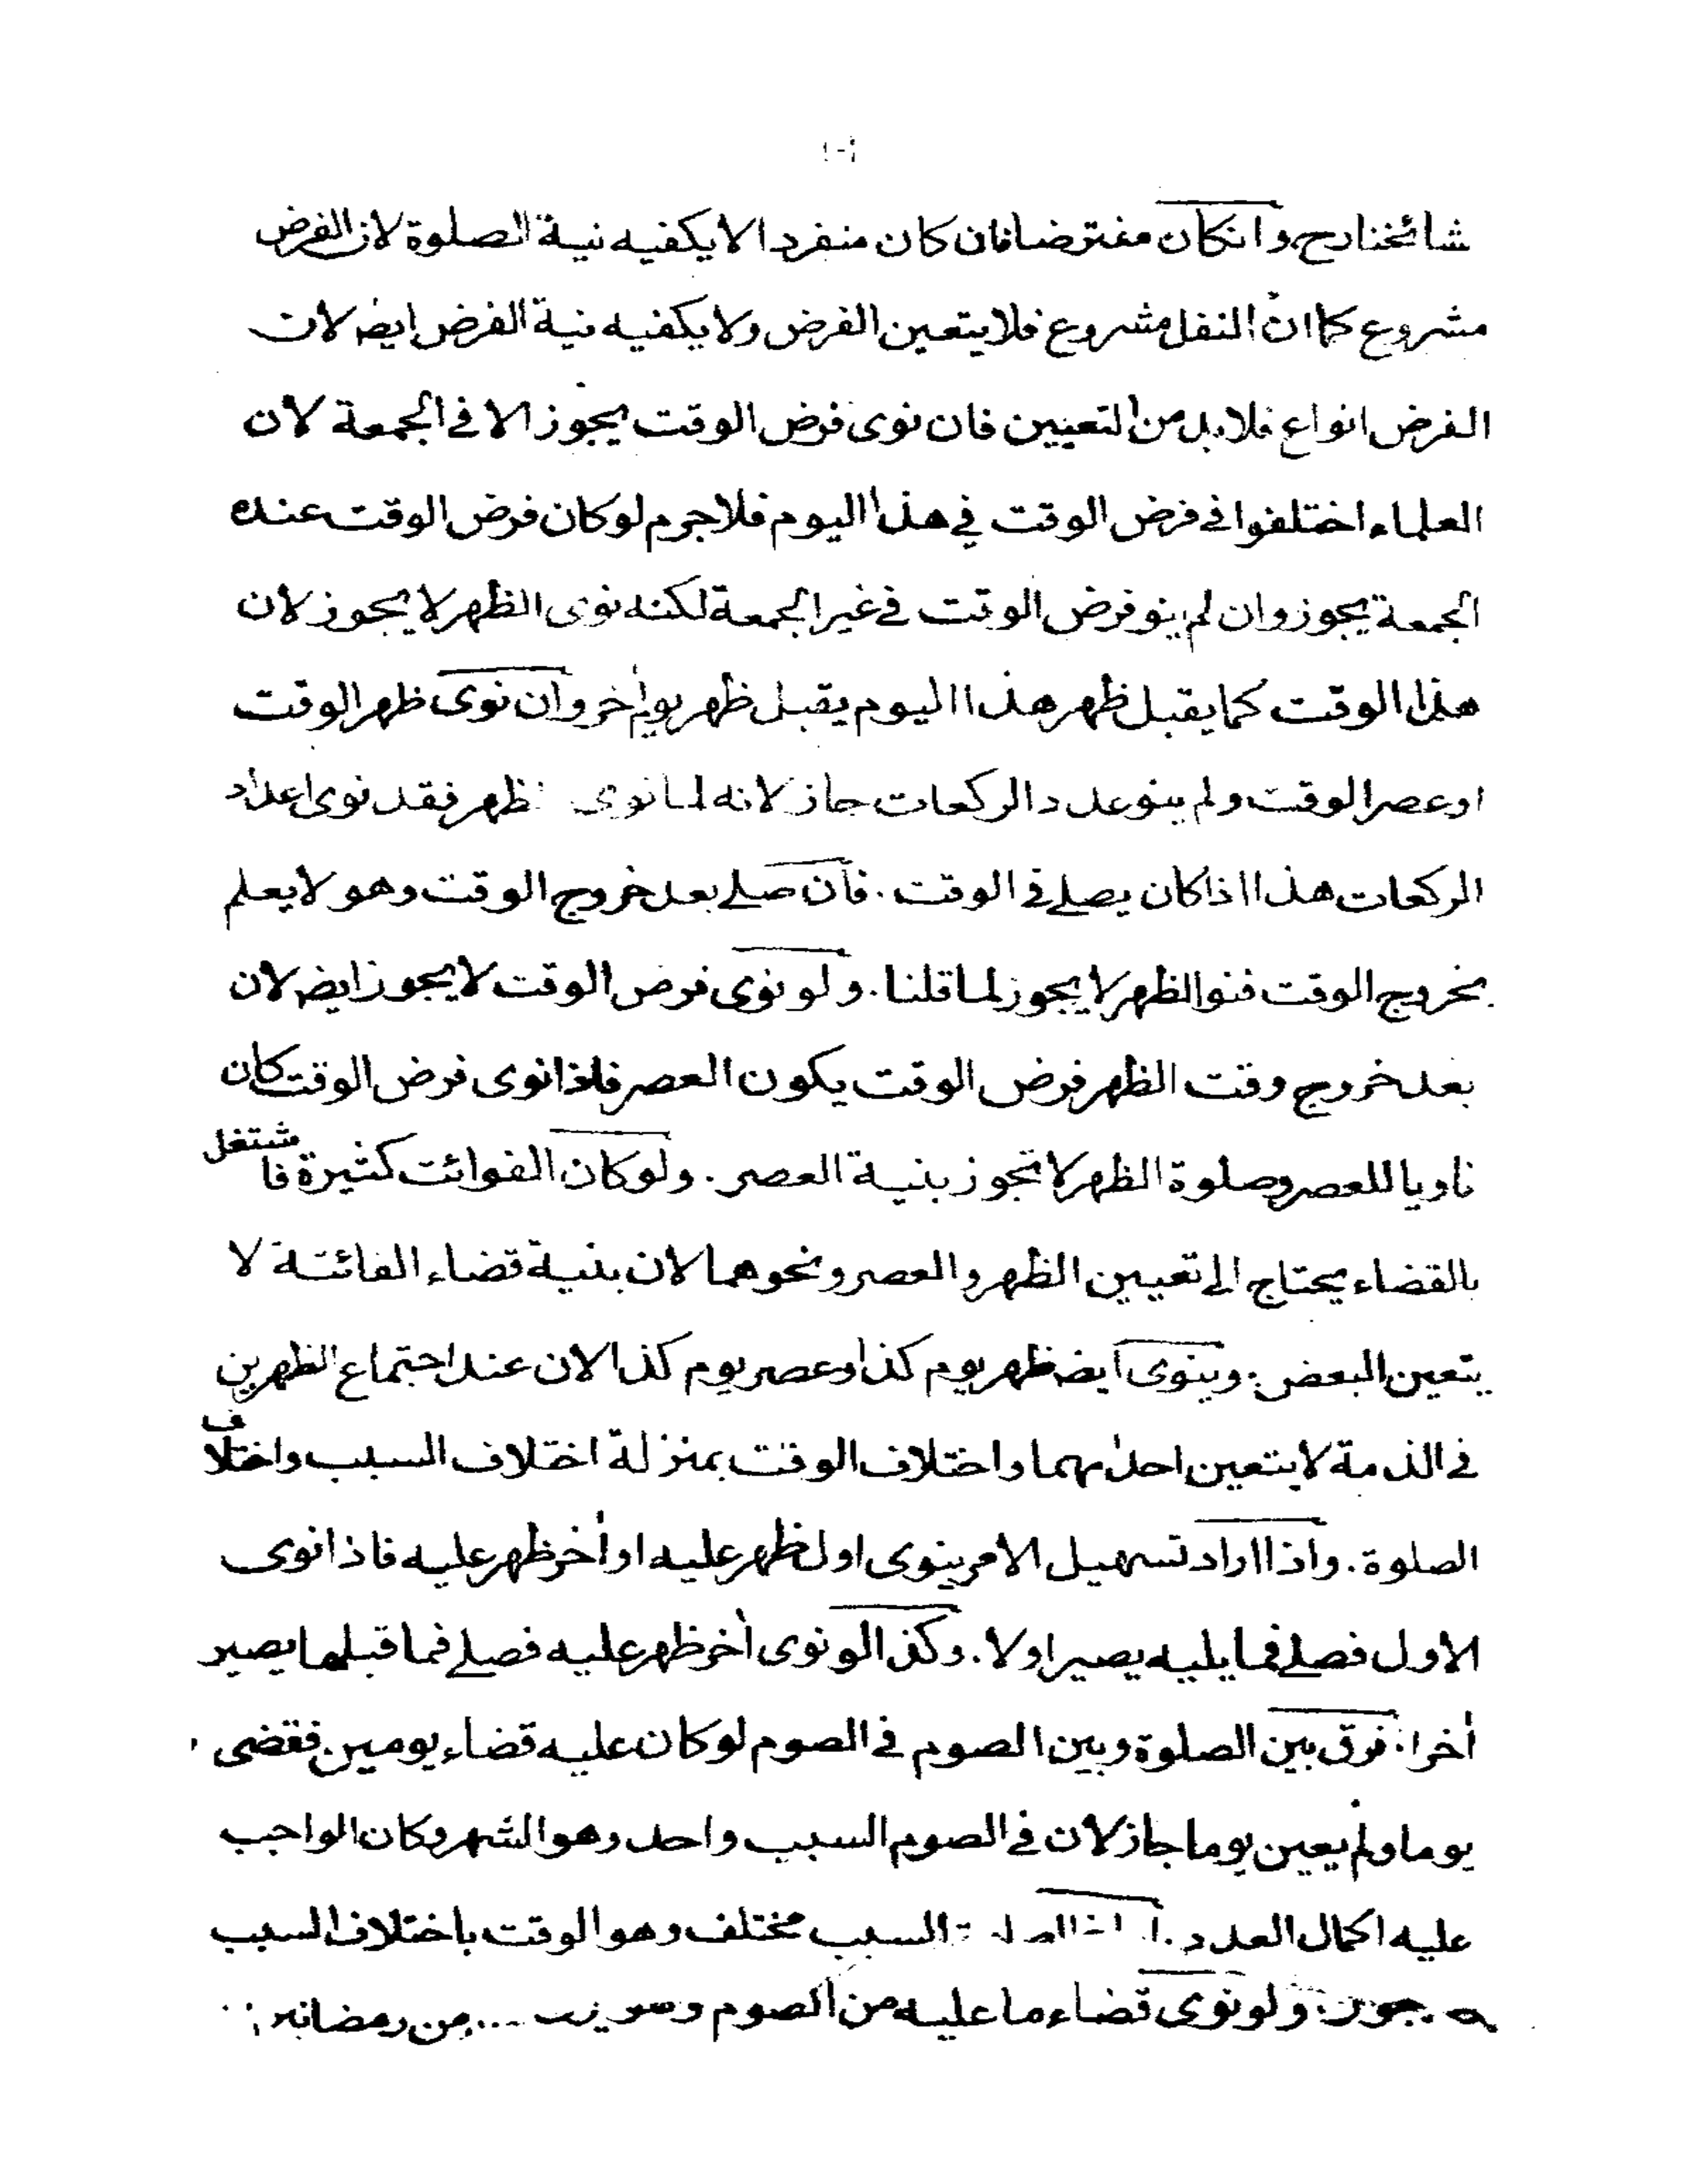 شائخنا رح وانكان مفترضا فان كان منفردا لا يكفيه نية الصلوة لان الفرض
مشروع كما ان النفل مشروع فلا يتعين الفرض ولا يكفيه نية الفرض ايضه لان
الفرض انواع فلا بد من التعيين فان نوى فرض الوقت يجوز الا في الجمعة لان
العلماء اختلفوا في فرض الوقت في هذا اليوم فلا جرم لو كان فرض الوقت عنده
الجمعة يجوز وان لم ينو فرض الوقت في غير الجمعة لكنه نوى الظهر لا يجوز لان
هذا الوقت كما يقبل ظهر هذا اليوم يقبل ظهر يوم اٰخر وان نوى ظهر الوقت
او عصر الوقت ولم ينو عدد الركعات جاز لانه لما نوى ظهر فقد نوى اعداد
الركعات هذا اذا كان يصلے في الوقت. فان صلے بعد خروج الوقت وهو لا يعلم
بخروج الوقت فنو الظهر لا يجوز لما قلنا. ولو نوى فرض الوقت لا يجوز ايضه لان
بعد خروج وقت الظهر فرض الوقت يكون العصر فاذا نوى فرض الوقت كان
ناويا للعصر وصلوة الظهر لا تجوز بنية العصر. ولو كان الفوائت كثيرة فاشتغل
بالقضاء يحتاج الے تعيين الظهر والعصر ونحوهما لان بنية قضاء الفائتة لا
يتعين البعض. وينوى ايضه ظهر يوم كذا وعصر يوم كذا لان عند اجتماع الظهرين
في الذمة لا يتعين احدٰهما واختلاف الوقت بمنزلة اختلاف السبب واختلاف
الصلوة. واذا اراد تسهيل الامر ينوى اول ظهر عليه او اٰخر ظهر عليه فاذا نوى
الاول فصلے فما يليه يصير اولا. وكذا لو نوى اٰخر ظهر عليه فصلے فما قبلها يصير
اٰخرا. فرق بين الصلوة وبين الصوم في الصوم لو كان عليه قضاء يومين فقضى
يوما ولم يعين يوما جاز لان في الصوم السبب واحد وهو الشهر وكان الواجب
عليه اكمال العدد. السبب مختلف وهو الوقت باختلاف السبب
ولو نوى قضاء ما عليه من الصوم من رمضان